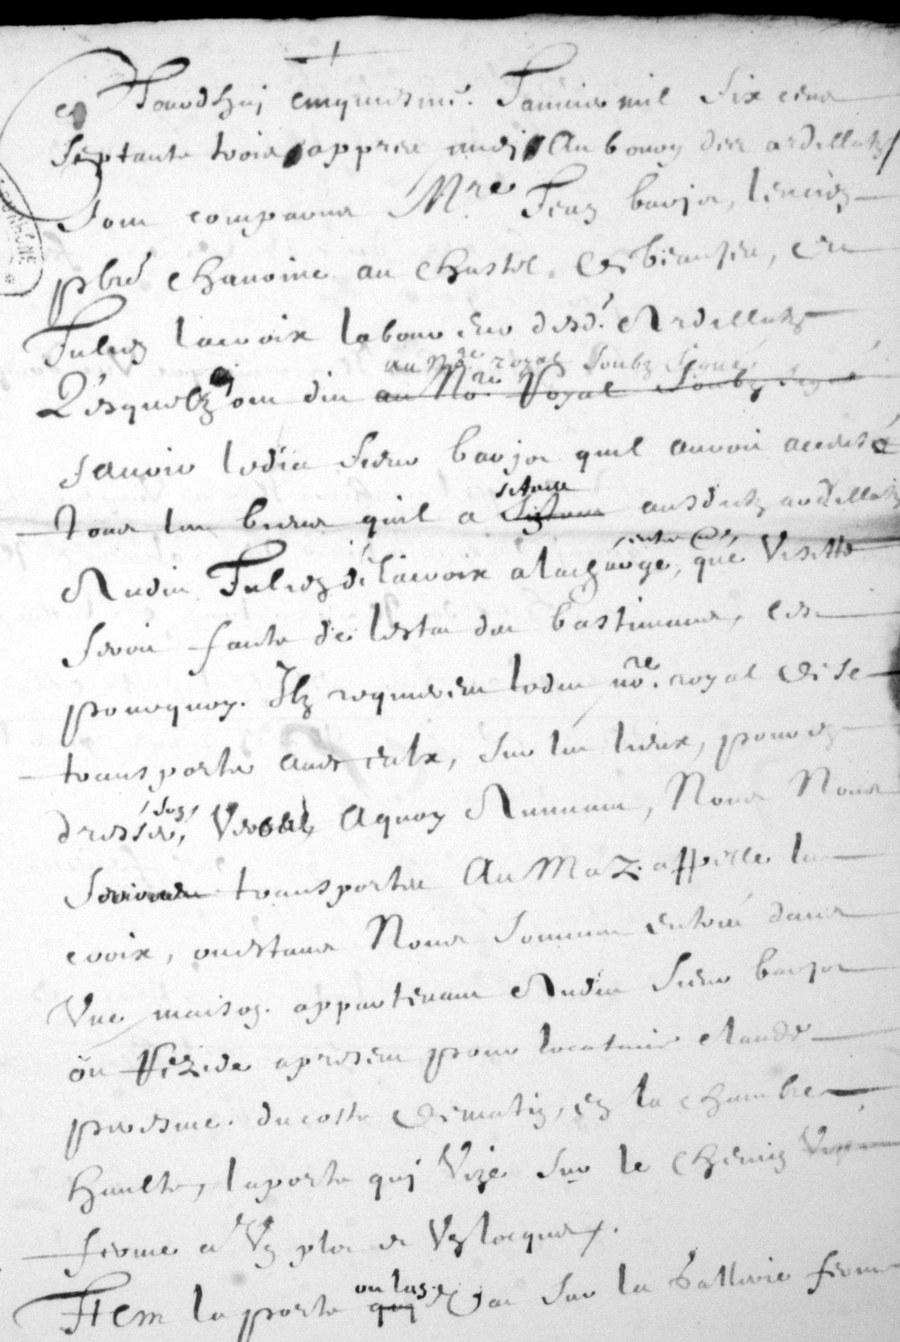 Ce Jourdhuj cinquiesme Janvier mil six cens
septante trois appres midj Au bourg des ardillatz
sont comparus Mre Jean barjot, lencien
pbre chanoine au chastel de beaujeu, et
Jullien lacroix laboureur desd. Ardillatz
Lesquelz ont dit au Nore Royal soubz signé
au Nre royal soubz signé
scavoir ledit sieur barjot quil auroit
tous les biens quil a situes ausditz ardillatz
Audit Jullien de lacroix a la charge, que Visitte
seroit faite de lestat des bastiments, cest
pourquoy Ilz requierent ledit nore royal de se
transporter avec eulx, sur les lieux, pour en
dresser, Verbal, A quoy Nous Nous
sommes transportes Au Maz appelle la
croix, ou estans Nous sommes entré dans
Une maison appartenant Audit sieur barjot
ou Rezide a present pour locataire claude
du costé de matin, en la chambre
haulte, la porte quj Vize sur le chemin
ferme a Un et Un locquet.
Item la porte quj sur la gallerie ferme